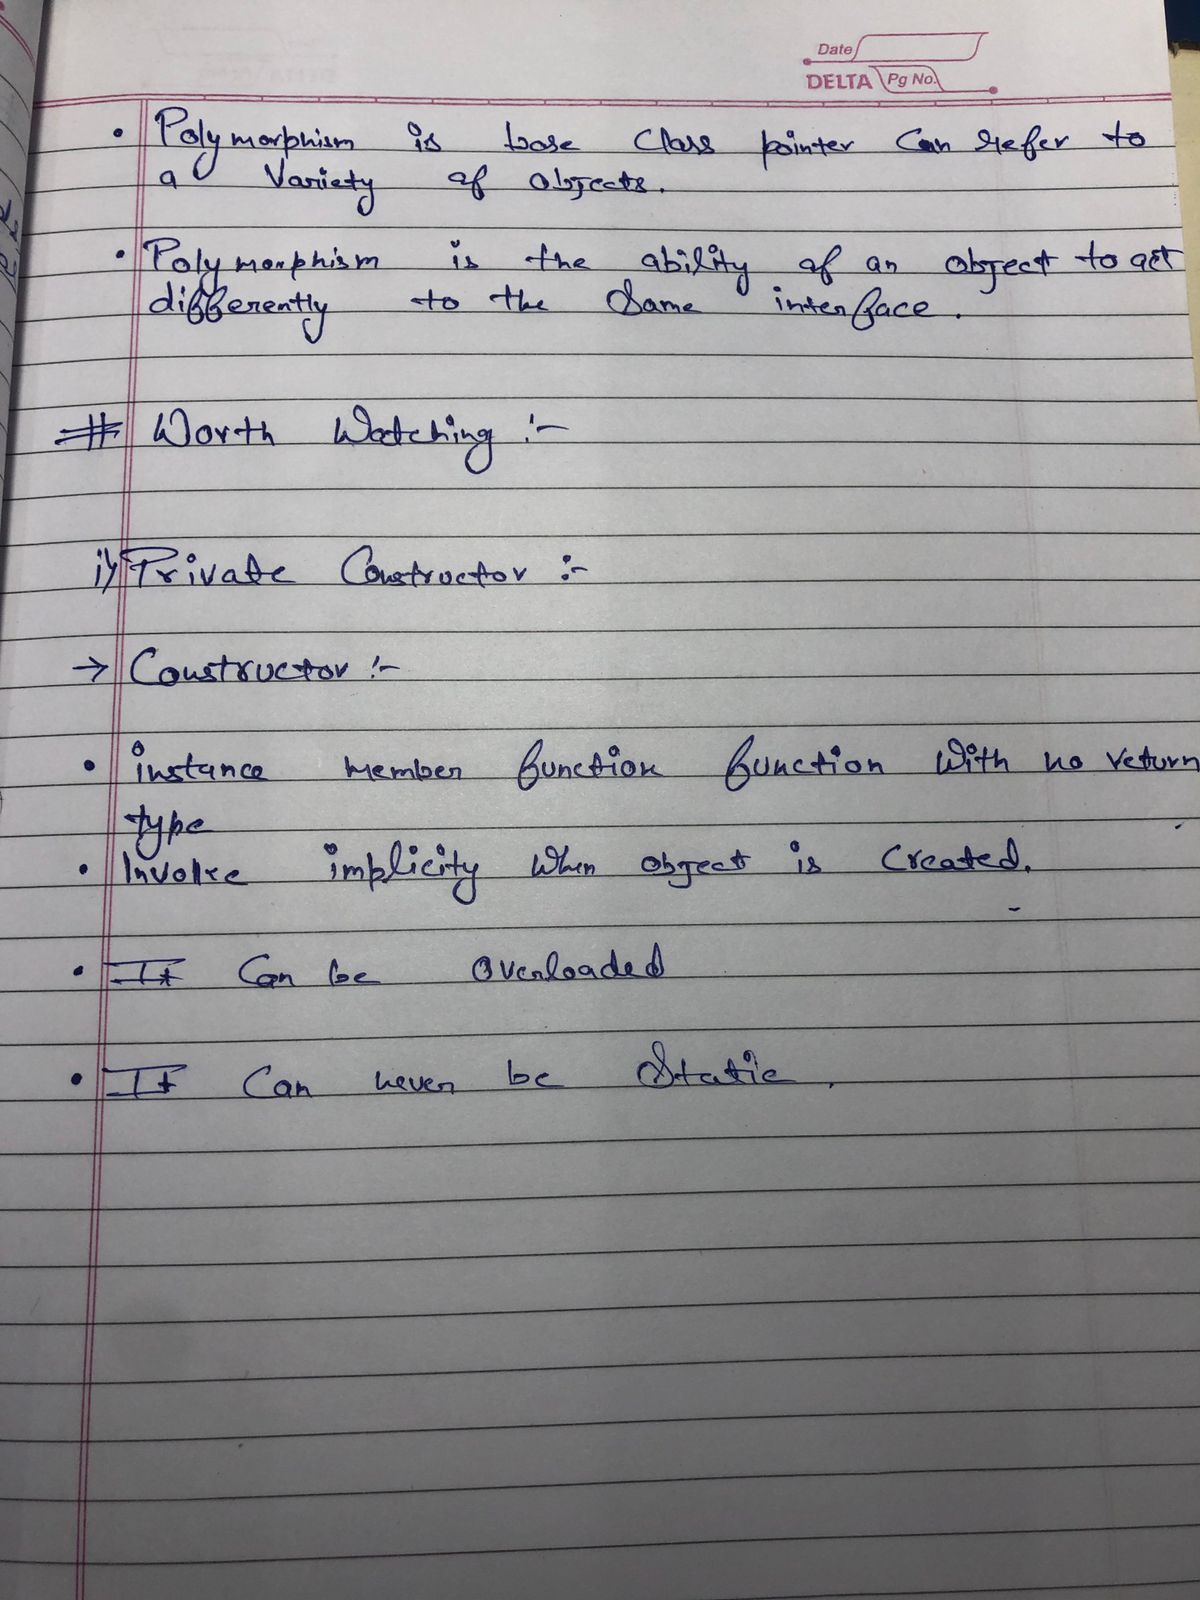 Date
DELTA Pg No.
• Polymorphism is base class pointer can refer to
a variety of objects.
• Polymorphism is the ability of an object to act
differently to the same interface.
# Worth Watching :-
i) Private Constructor :-
→ Constructor :-
• instance member function function with no return
type
• Invoke implicity when object is created.
• It can be overloaded
• It can never be static.